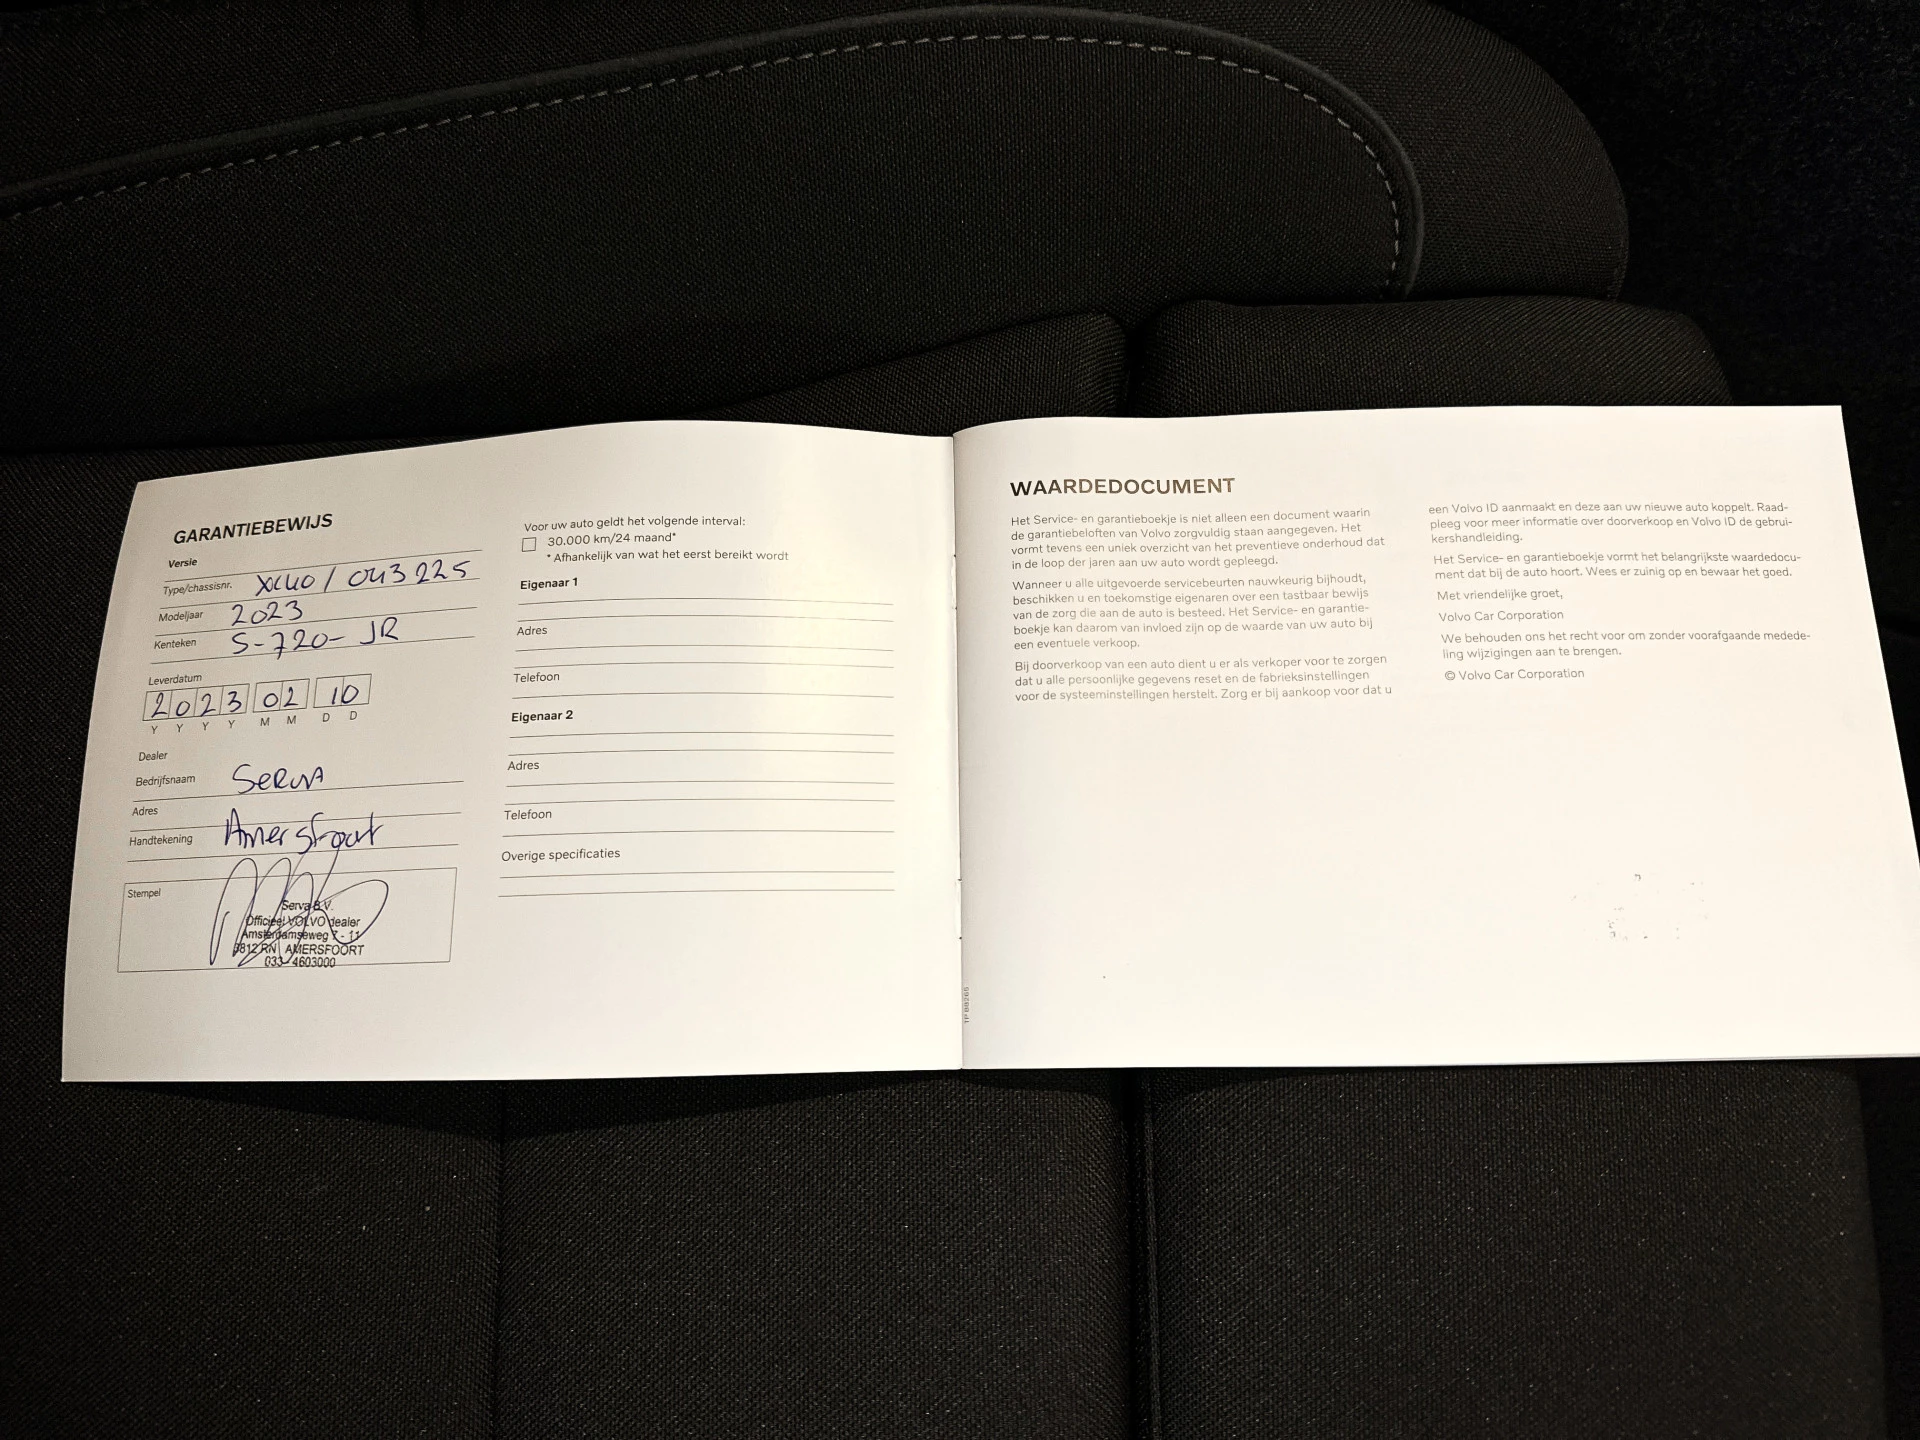 GARANTIEBEWIJS
Versie
Type/chassisnr. XC40 / 043225
Modeljaar 2023
Kenteken S-720-JR
Leverdatum
2023 02 10
Y Y Y Y M M D D
Dealer
Bedrijfsnaam Serva
Adres
Handtekening Amersfoort
Stempel
Serva B.V.
Officieel VOLVO dealer
Amsterdamseweg 7 - 11
3812 RN AMERSFOORT
033-4603000
Voor uw auto geldt het volgende interval:
30.000 km/24 maand*
* Afhankelijk van wat het eerst bereikt wordt
Eigenaar 1
Adres
Telefoon
Eigenaar 2
Adres
Telefoon
Overige specificaties
WAARDEDOCUMENT
Het Service- en garantieboekje is niet alleen een document waarin
de garantiebeloften van Volvo zorgvuldig staan aangegeven. Het
vormt tevens een uniek overzicht van het preventieve onderhoud dat
in de loop der jaren aan uw auto wordt gepleegd.
Wanneer u alle uitgevoerde servicebeurten nauwkeurig bijhoudt,
beschikken u en toekomstige eigenaren over een tastbaar bewijs
van de zorg die aan de auto is besteed. Het Service- en garantie-
boekje kan daarom van invloed zijn op de waarde van uw auto bij
een eventuele verkoop.
Bij doorverkoop van een auto dient u er als verkoper voor te zorgen
dat u alle persoonlijke gegevens reset en de fabrieksinstellingen
voor de systeeminstellingen herstelt. Zorg er bij aankoop voor dat u
een Volvo ID aanmaakt en deze aan uw nieuwe auto koppelt. Raad-
pleeg voor meer informatie over doorverkoop en Volvo ID de gebrui-
kershandleiding.
Het Service- en garantieboekje vormt het belangrijkste waardedocu-
ment dat bij de auto hoort. Wees er zuinig op en bewaar het goed.
Met vriendelijke groet,
Volvo Car Corporation
We behouden ons het recht voor om zonder voorafgaande mededeling-
ling wijzigingen aan te brengen.
© Volvo Car Corporation
TP 88265